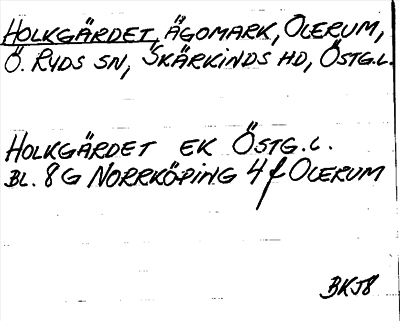 HOLKGÄRDET, ÄGOMARK, OLERUM,
Ö. RYDS SN, SKÄRKINDS HD, ÖSTG.L.
HOLKGÄRDET EK ÖSTG.L.
BL. 8G NORRKÖPING 4f OLERUM
BKJ8